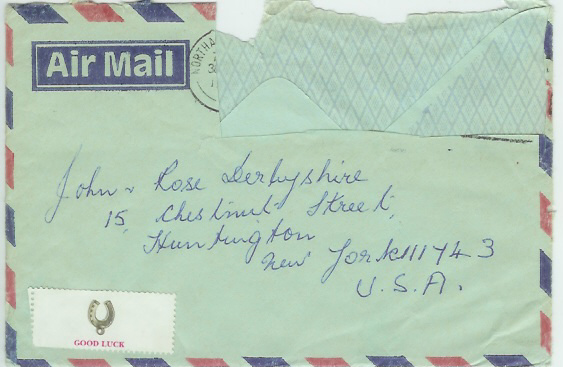 Air Mail
NORTHA
John & Rose Derbyshire
15, Chestnut Street,
Huntington
New York 11743
U.S.A.
GOOD LUCK